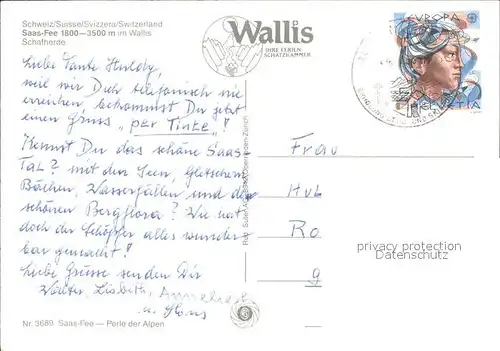 Schweiz/Suisse/Svizzera/Switzerland
Saas-Fee 1800—3500 m im Wallis
Schafherde
Wallis
IHRE FERIEN-
SCHATZKAMMER
EUROPA
HELVETIA
Liebe Tante Huldy,
weil wir Dich telefonisch nie
erreichen, bekommst Du jetzt
einen Gruss "per Tinte"!
Kennst Du das schöne Saas
Tal? mit den Seen, Gletschern
Bächen, Wasserfällen und der
schönen Bergflora? Wie hat
doch der Schöpfer alles wunder
bar gemacht!
Liebe Grüsse senden Dir
Walter, Lisbeth, Annerös
u. Hans
Frau
Hul
Ro
g
privacy protection
Datenschutz
Nr. 3689 Saas-Fee — Perle der Alpen